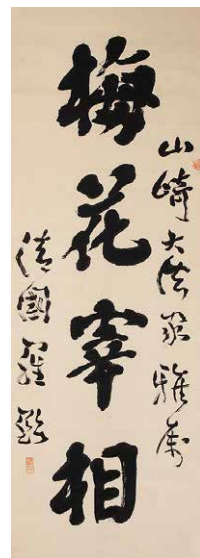 山崎大法家雅屬
梅花宰相
清國羅